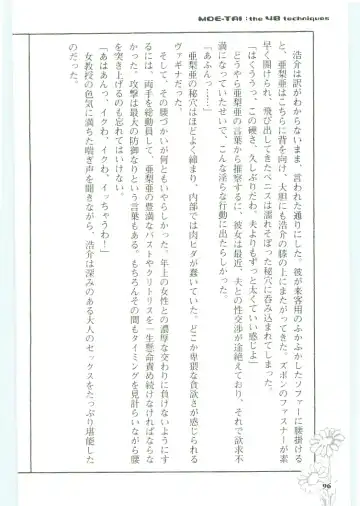 MOE-TAI : the 48 techniques
浩介は訳がわからないまま、言われた通りにした。彼が来客用のふかふかしたソファーに腰掛ける
と、亜梨亜はこちらに背を向け、大胆にも浩介の膝の上にまたがってきた。ズボンのファスナーが素
早く開けられ、飛び出してきたペニスは濡れそぼった秘穴に呑み込まれてしまった。
「はくううっ、この硬さ、久しぶりだわ。夫よりもずっと太くていい感じよ」
どうやら亜梨亜の言葉から推察するに、彼女は最近、夫との性交渉が途絶えており、それで欲求不
満になっていたせいで、こんな淫らな行動に出たらしかった。
「あふん……」
亜梨亜の秘穴はほどよく締まり、内部では肉ヒダが蠢いていた。どこか卑猥な貪欲さが感じられる
ヴァギナだった。
そして、その膝づかいが何ともいやらしかった。年上の女性との濃厚な交わりに負けないようにす
るには、両手を総動員して、亜梨亜の豊満なバストやクリトリスを一生懸命責め続けなければならな
かった。攻撃は最大の防御なりという言葉もある。もちろんその間もタイミングを見計らいながら腰
を突き上げるのも忘れてはいけない。
「あはあんっ、イクわ、イクわ、イッちゃうわ！」
女教授の色気に満ちた喘ぎ声を聞きながら、浩介は深みのある大人のセックスをたっぷり堪能した
のだった。
96